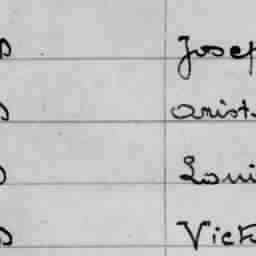 Josep
arist
Loui
Vict